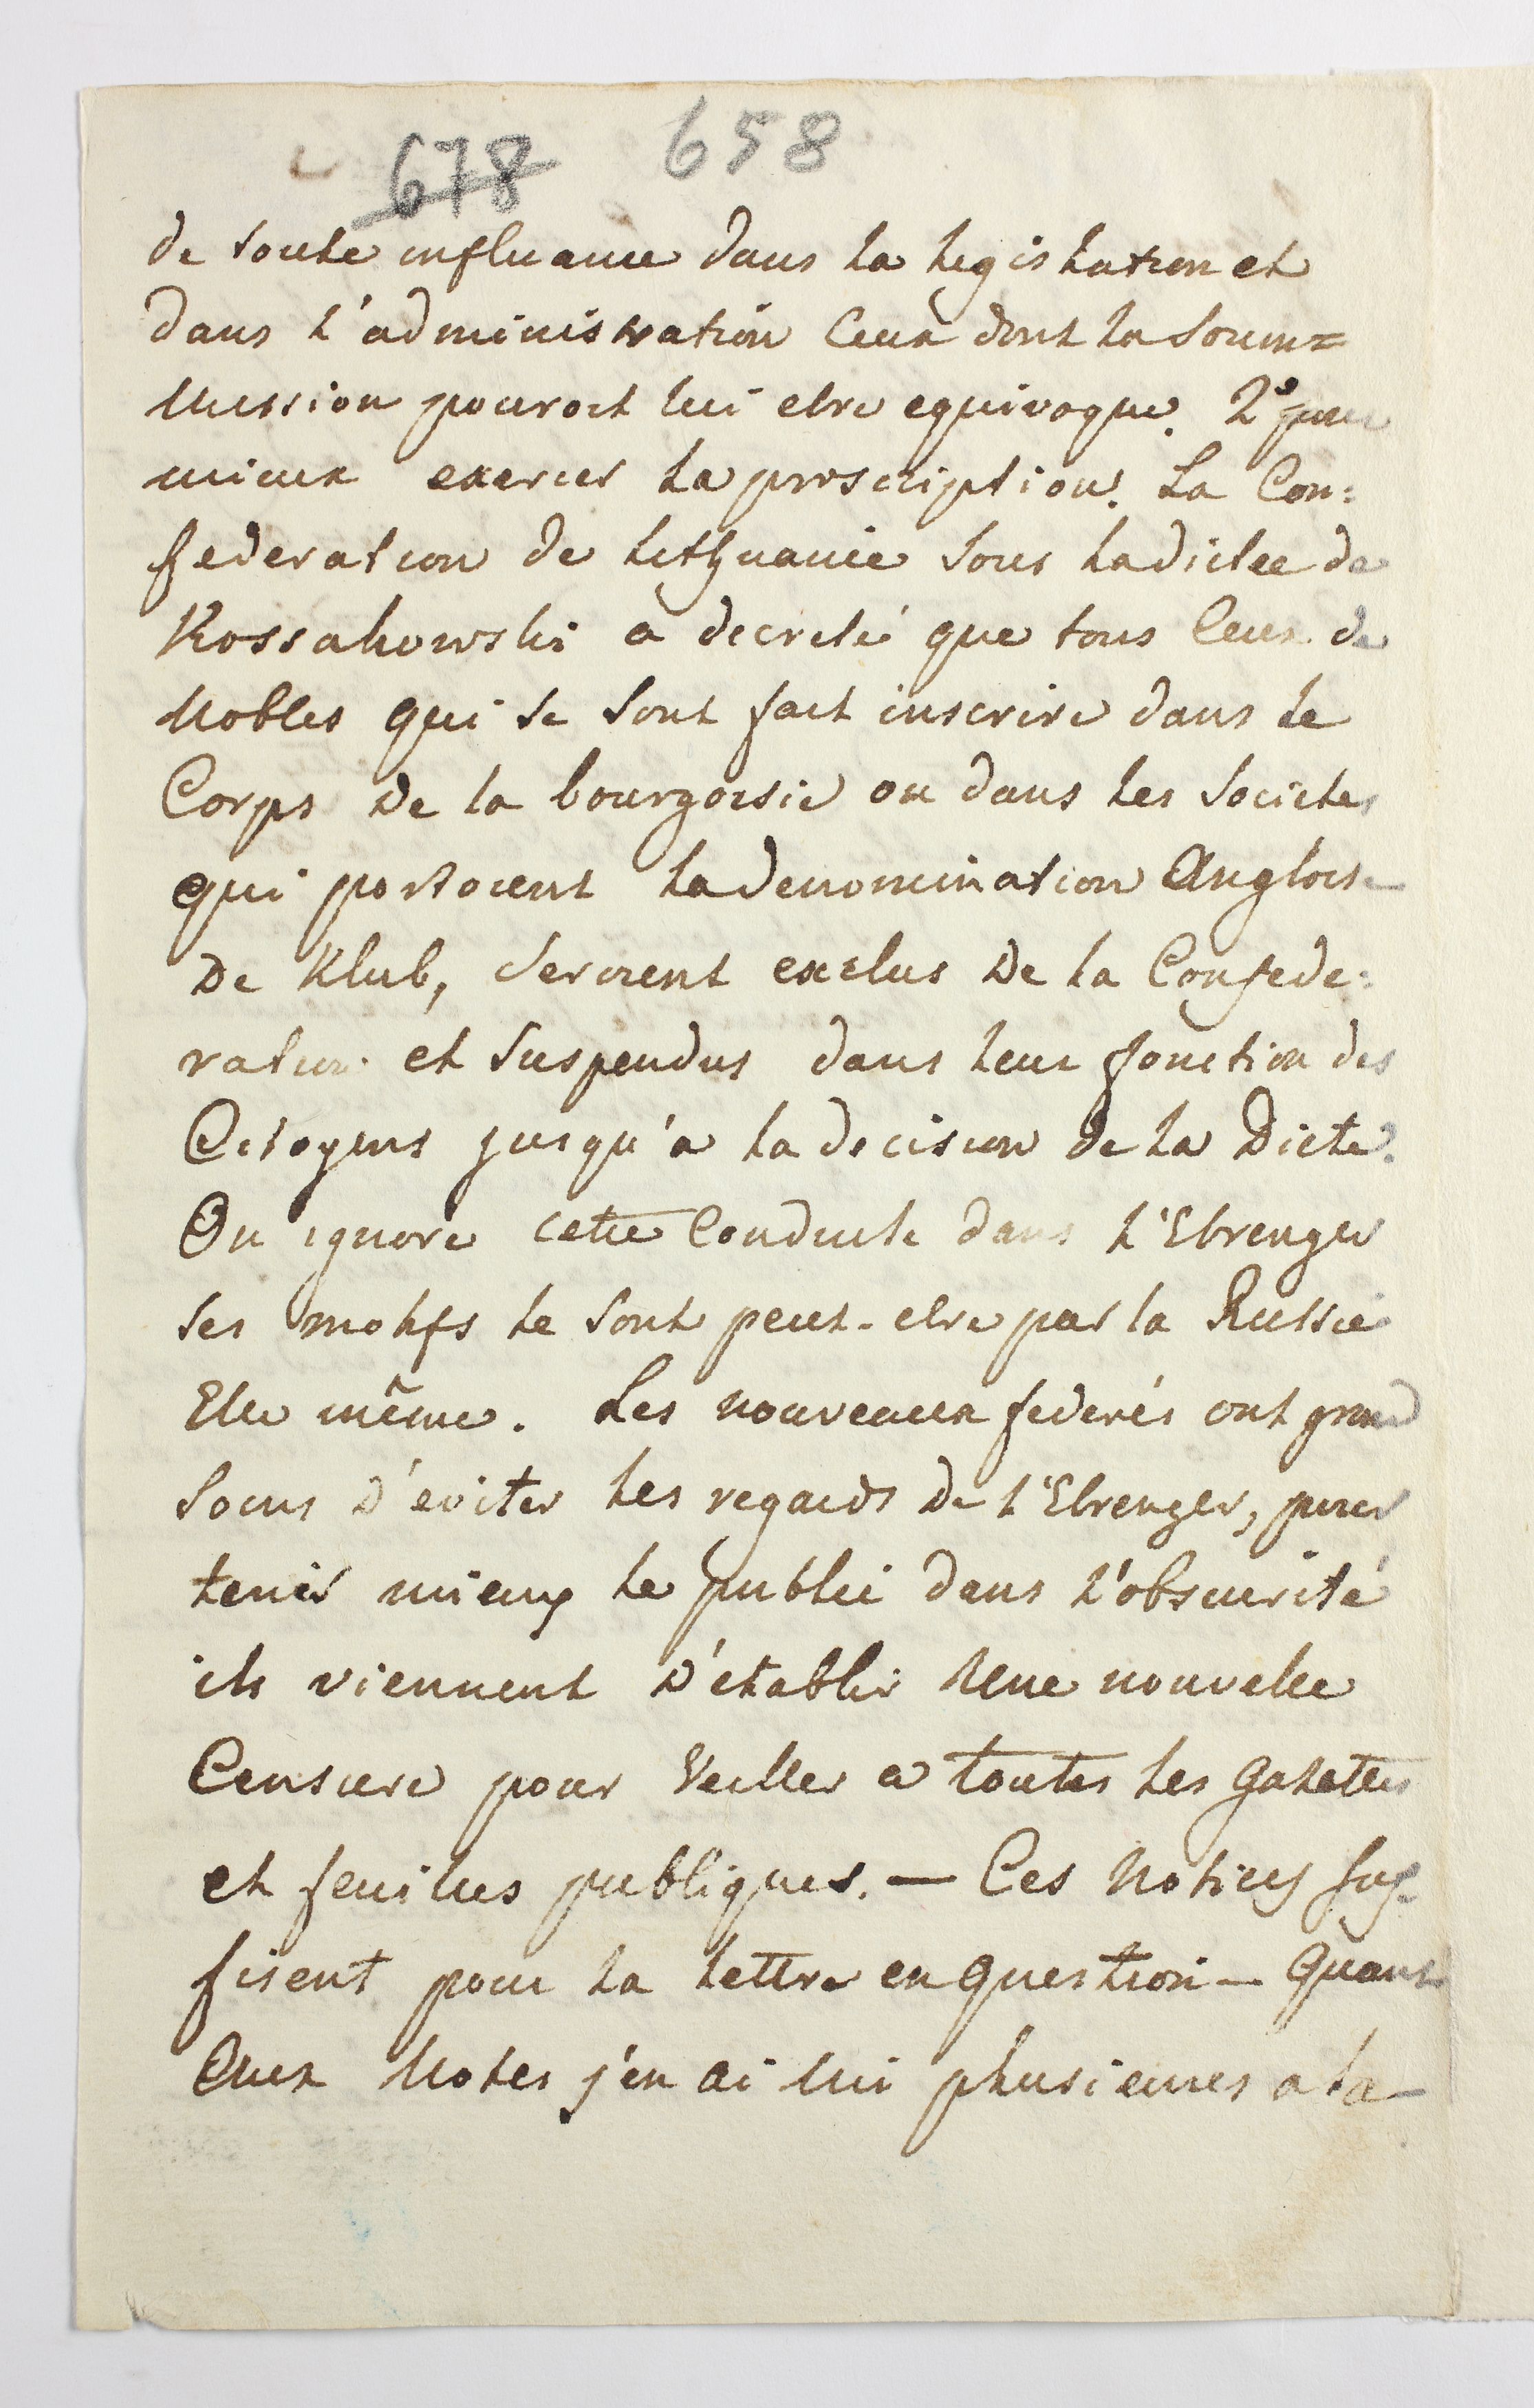 678 658
de toute influance dans la legislation et
dans l'administration Ceux dont la Soum=
mission pouroit lui etre equivoque. 2º pour
mieux exercer la proscription. La Con=
federation de Lithuanie Sous la dictee de
Kossakowski a decreté que tous Ceux de
Nobles qui se Sont fait inscrire dans le
Corps de la bourgoisie ou dans les Societes
qui portoient la denomination Angloise
De Klub, Seroient exclus De la Confede=
ration et Suspendus dans leur fonction des
Citoyens jusqu'a la decision de la Diete.
On ignore cette Conduite dans l'Etrenger
Ses motifs le Sont peut-etre par la Russie
Elle même. Les nouveaux federés ont grand
Soins d'eviter les regards de l'Etrenger, pour
tenir mieux le publie dans l'obscurité
ils viennent d'etablir Une nouvelle
Censure pour Veiller a toutes les Gazettes
et feuilles publiques. — Ces Notices suf=
fisent pour la lettre en question — Quant
Aux Notes j'en ai mi plusieures a la